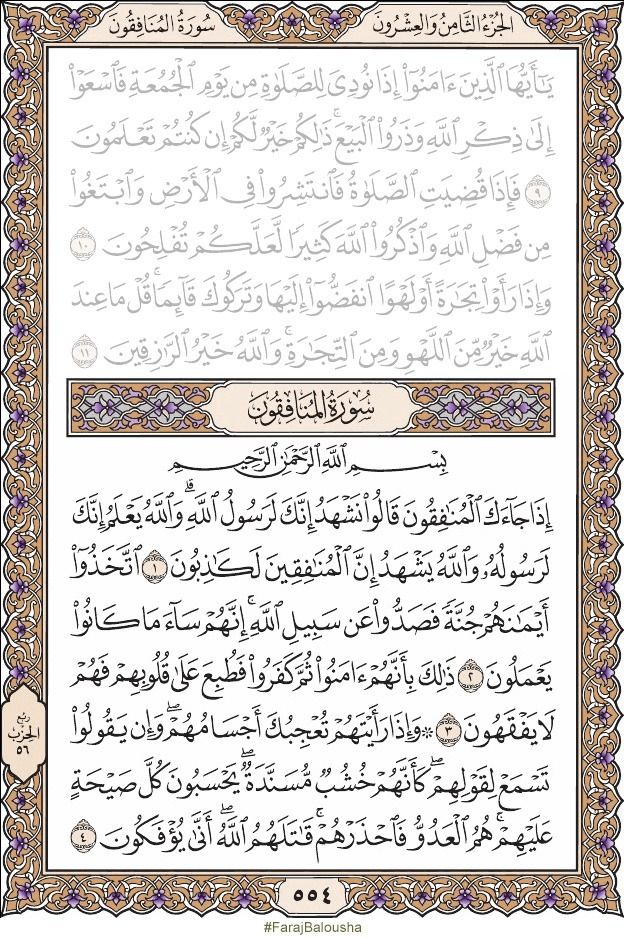 الجُزْءُ الثَّامِنُ وَالعِشْرُونَ
سُورَةُ المُنَافِقُونَ
يَـٰٓأَيُّهَا ٱلَّذِينَ ءَامَنُوٓا۟ إِذَا نُودِىَ لِلصَّلَوٰةِ مِن يَوْمِ ٱلْجُمُعَةِ فَٱسْعَوْا۟
إِلَىٰ ذِكْرِ ٱللَّهِ وَذَرُوا۟ ٱلْبَيْعَ ۚ ذَٰلِكُمْ خَيْرٌ لَّكُمْ إِن كُنتُمْ تَعْلَمُونَ
٩ فَإِذَا قُضِيَتِ ٱلصَّلَوٰةُ فَٱنتَشِرُوا۟ فِى ٱلْأَرْضِ وَٱبْتَغُوا۟
مِن فَضْلِ ٱللَّهِ وَٱذْكُرُوا۟ ٱللَّهَ كَثِيرًا لَّعَلَّكُمْ تُفْلِحُونَ ١٠
وَإِذَا رَأَوْا۟ تِجَـٰرَةً أَوْ لَهْوًا ٱنفَضُّوٓا۟ إِلَيْهَا وَتَرَكُوكَ قَآئِمًا ۚ قُلْ مَا عِندَ
ٱللَّهِ خَيْرٌ مِّنَ ٱللَّهْوِ وَمِنَ ٱلتِّجَـٰرَةِ ۚ وَٱللَّهُ خَيْرُ ٱلرَّٰزِقِينَ ١١
سُورَةُ المُنَافِقُونَ
بِسْمِ ٱللَّهِ ٱلرَّحْمَـٰنِ ٱلرَّحِيمِ
إِذَا جَآءَكَ ٱلْمُنَـٰفِقُونَ قَالُوا۟ نَشْهَدُ إِنَّكَ لَرَسُولُ ٱللَّهِ ۗ وَٱللَّهُ يَعْلَمُ إِنَّكَ
لَرَسُولُهُۥ وَٱللَّهُ يَشْهَدُ إِنَّ ٱلْمُنَـٰفِقِينَ لَكَـٰذِبُونَ ١ ٱتَّخَذُوٓا۟
أَيْمَـٰنَهُمْ جُنَّةً فَصَدُّوا۟ عَن سَبِيلِ ٱللَّهِ ۚ إِنَّهُمْ سَآءَ مَا كَانُوا۟
يَعْمَلُونَ ٢ ذَٰلِكَ بِأَنَّهُمْ ءَامَنُوا۟ ثُمَّ كَفَرُوا۟ فَطُبِعَ عَلَىٰ قُلُوبِهِمْ فَهُمْ
لَا يَفْقَهُونَ ٣ ۞ وَإِذَا رَأَيْتَهُمْ تُعْجِبُكَ أَجْسَامُهُمْ ۖ وَإِن يَقُولُوا۟
تَسْمَعْ لِقَوْلِهِمْ ۖ كَأَنَّهُمْ خُشُبٌ مُّسَنَّدَةٌ ۖ يَحْسَبُونَ كُلَّ صَيْحَةٍ
عَلَيْهِمْ ۚ هُمُ ٱلْعَدُوُّ فَٱحْذَرْهُمْ ۚ قَـٰتَلَهُمُ ٱللَّهُ ۖ أَنَّىٰ يُؤْفَكُونَ ٤
ربع
الحِزْب
٥٦
٥٥٤
#FarajBalousha